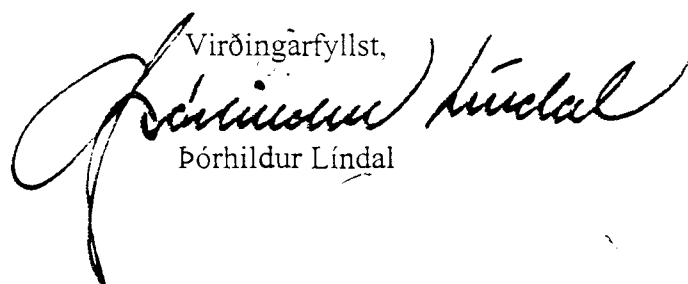 Virðingarfyllst,
Þórhildur Líndal
Þórhildur Líndal